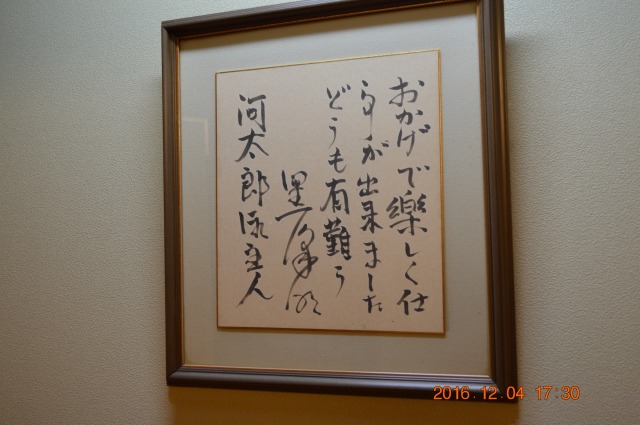 おかげで楽しく仕
事が出来ました
どうも有難う
黒澤明
河太郎御主人
2016.12.04 17:30